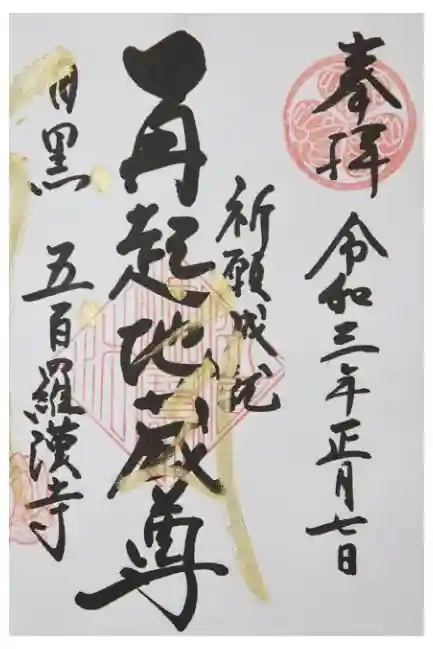 奉拝
令和三年正月七日
祈願成就
再起地蔵尊
目黒 五百羅漢寺